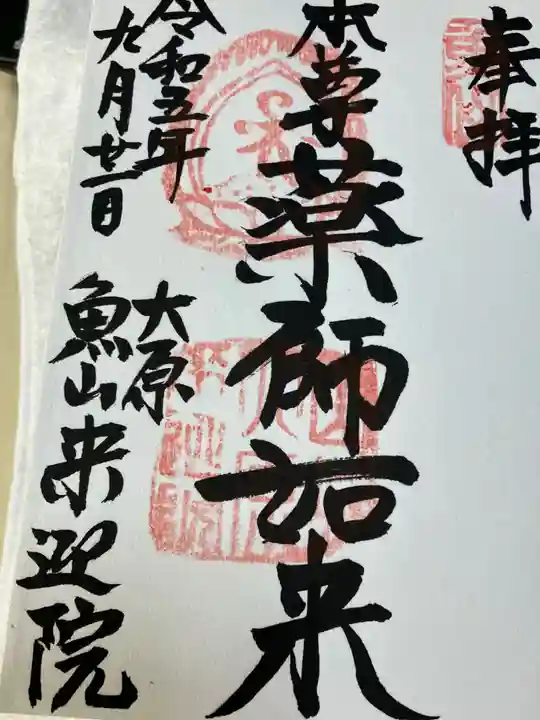 奉拝
本尊
薬師如来
令和五年
九月廿一日
大原
魚山来迎院